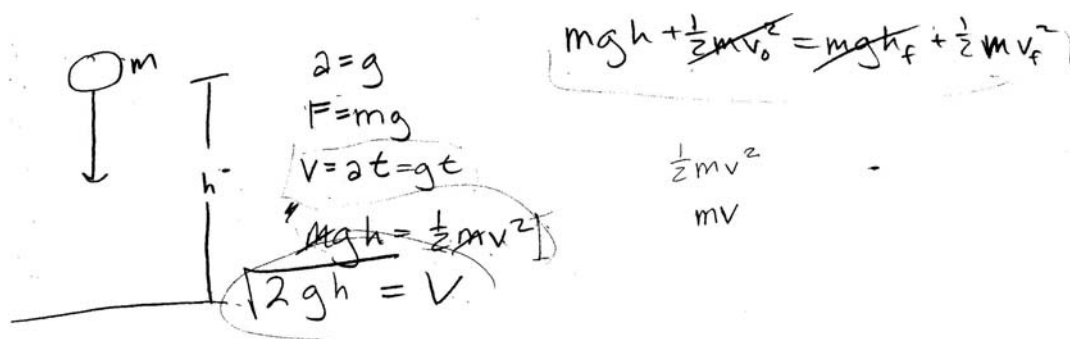 m
h
a=g
F=mg
v=at=gt
mgh = ½mv²
√2gh = V
mgh + ½mv₀² = mgh_f + ½mv_f²
½mv²
mv